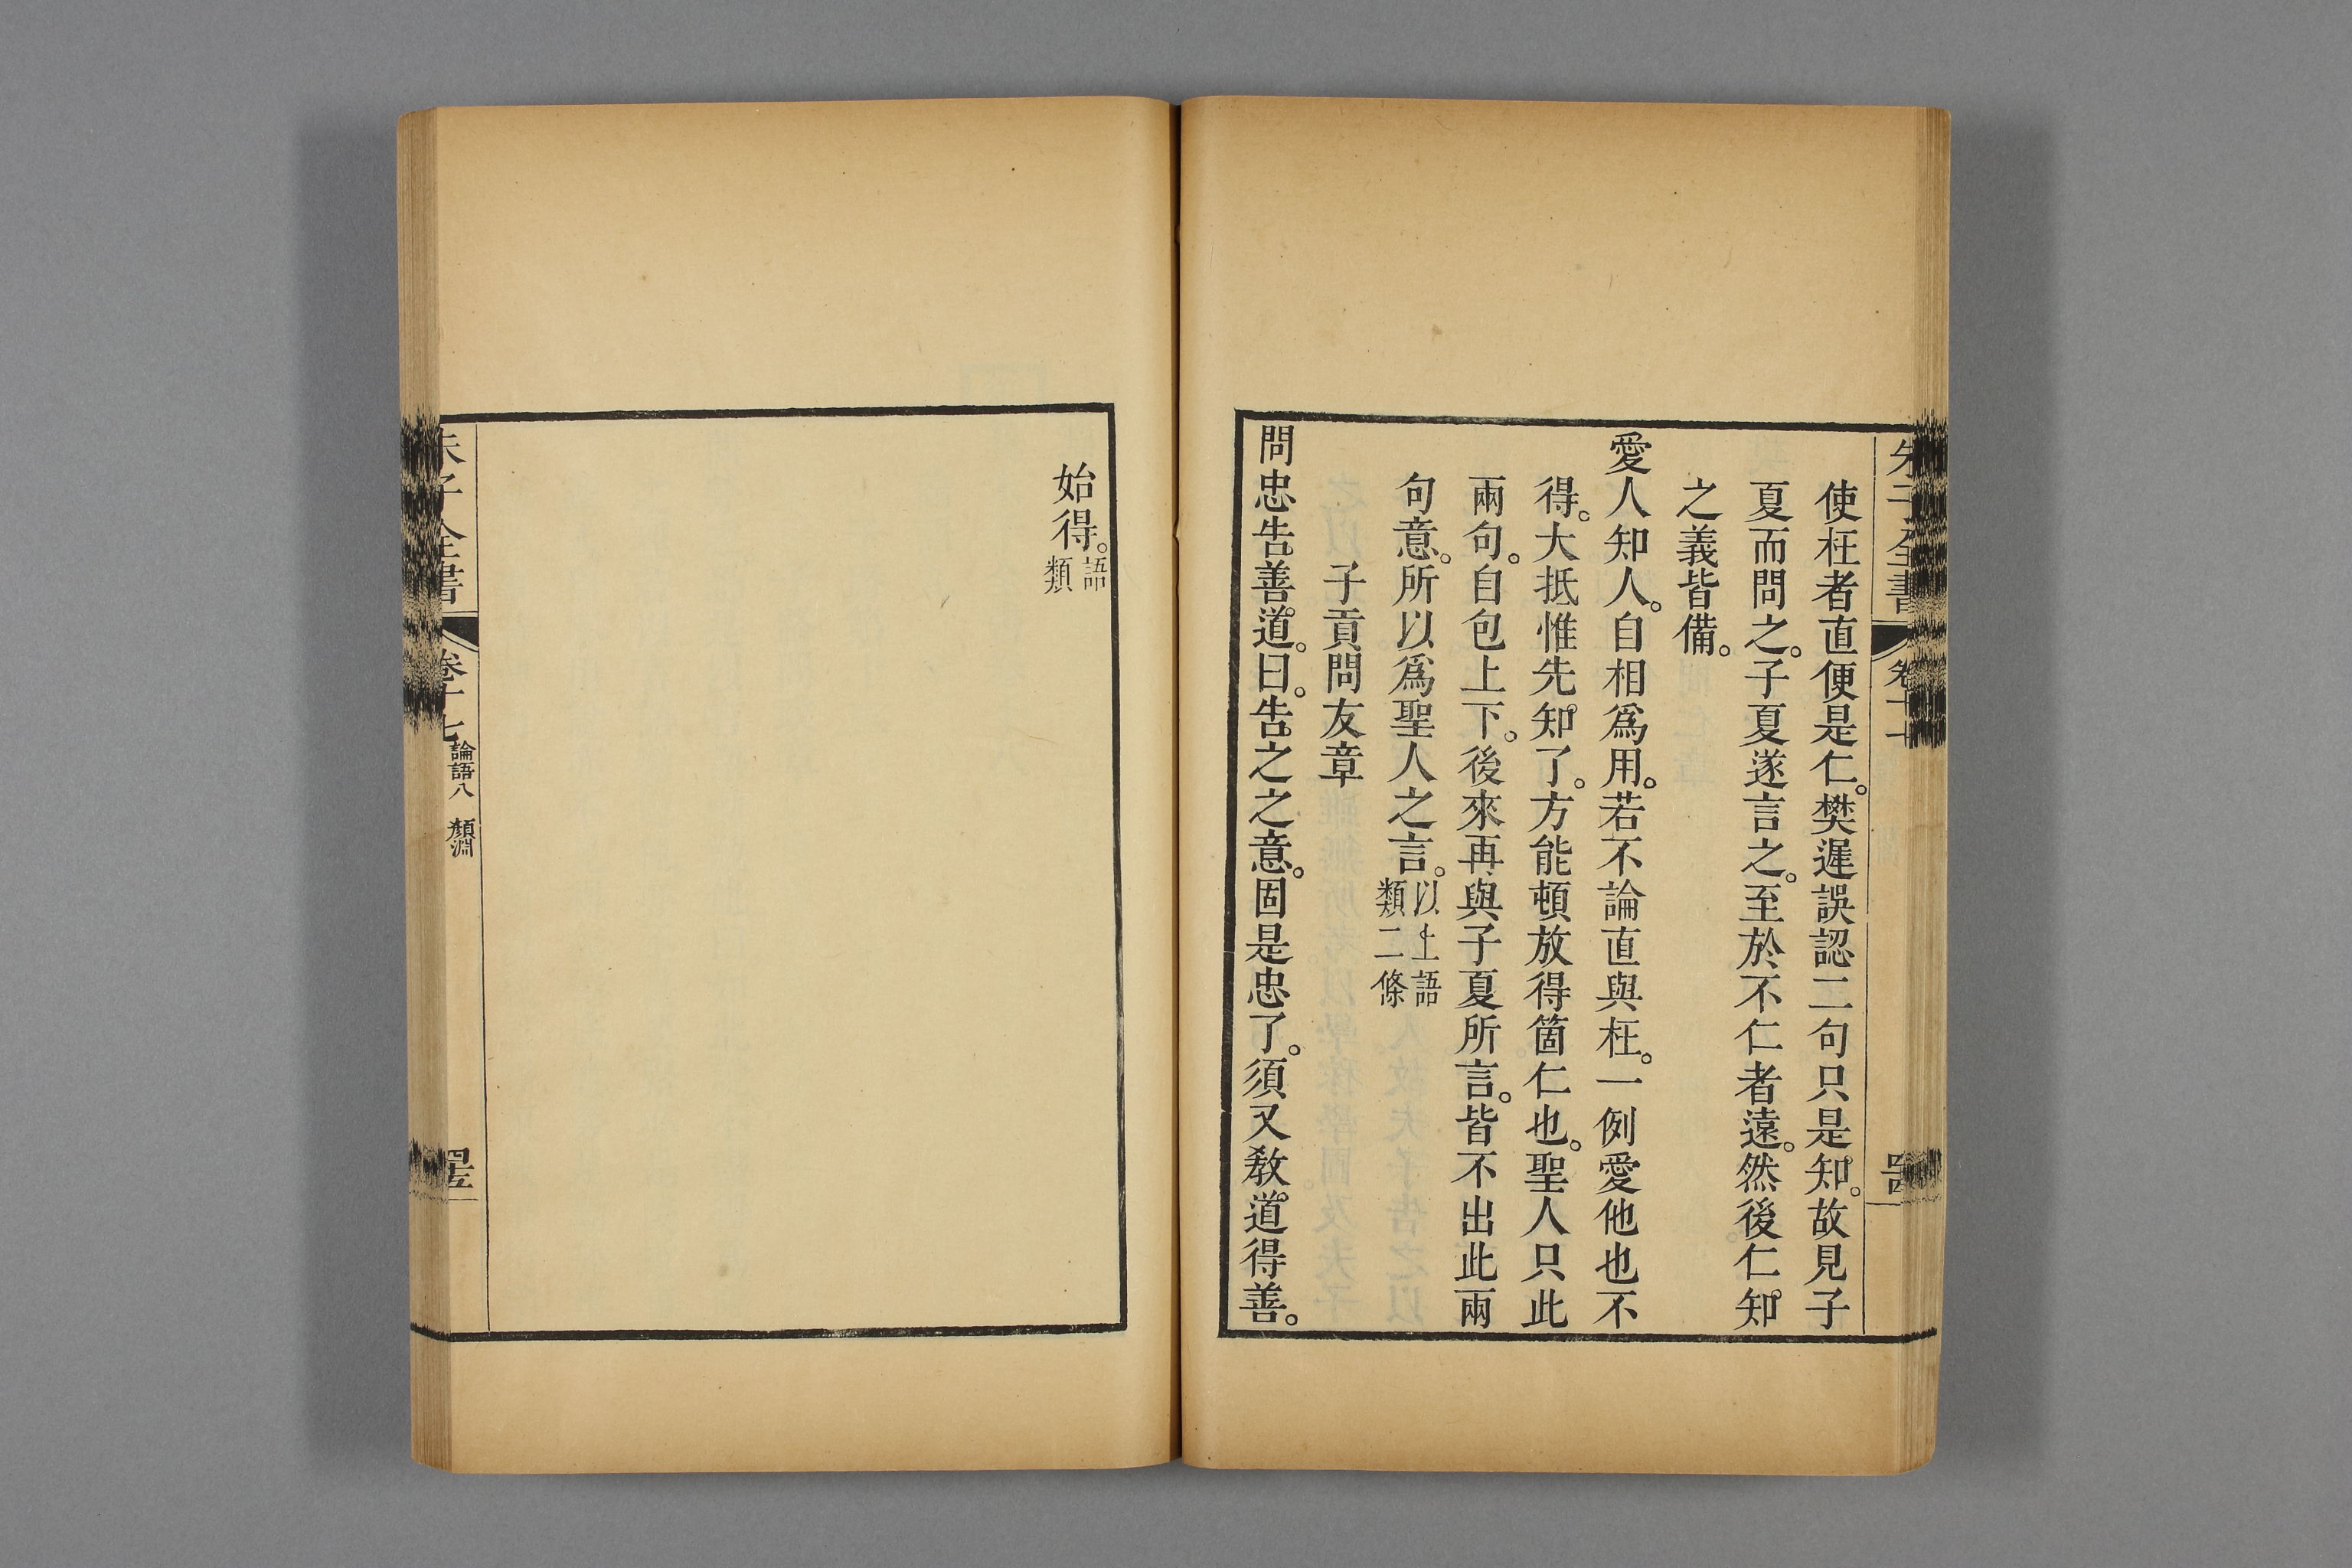 使枉者直便是仁。樊遲誤認二句只是知。故見子
夏而問之。子夏遂言之。至於不仁者遠。然後仁知
之義皆備。
愛人知人。自相爲用。若不論直與枉。一例愛他也不
得。大抵惟先知了。方能頓放得箇仁也。聖人只此
兩句。自包上下。後來再與子夏所言。皆不出此兩
句意。所以爲聖人之言。以上語類二條
子貢問友章
問忠告善道。曰。告之之意。固是忠了。須又教道得善。
始得。語類
朱子全書
卷十七
論語八 顏淵